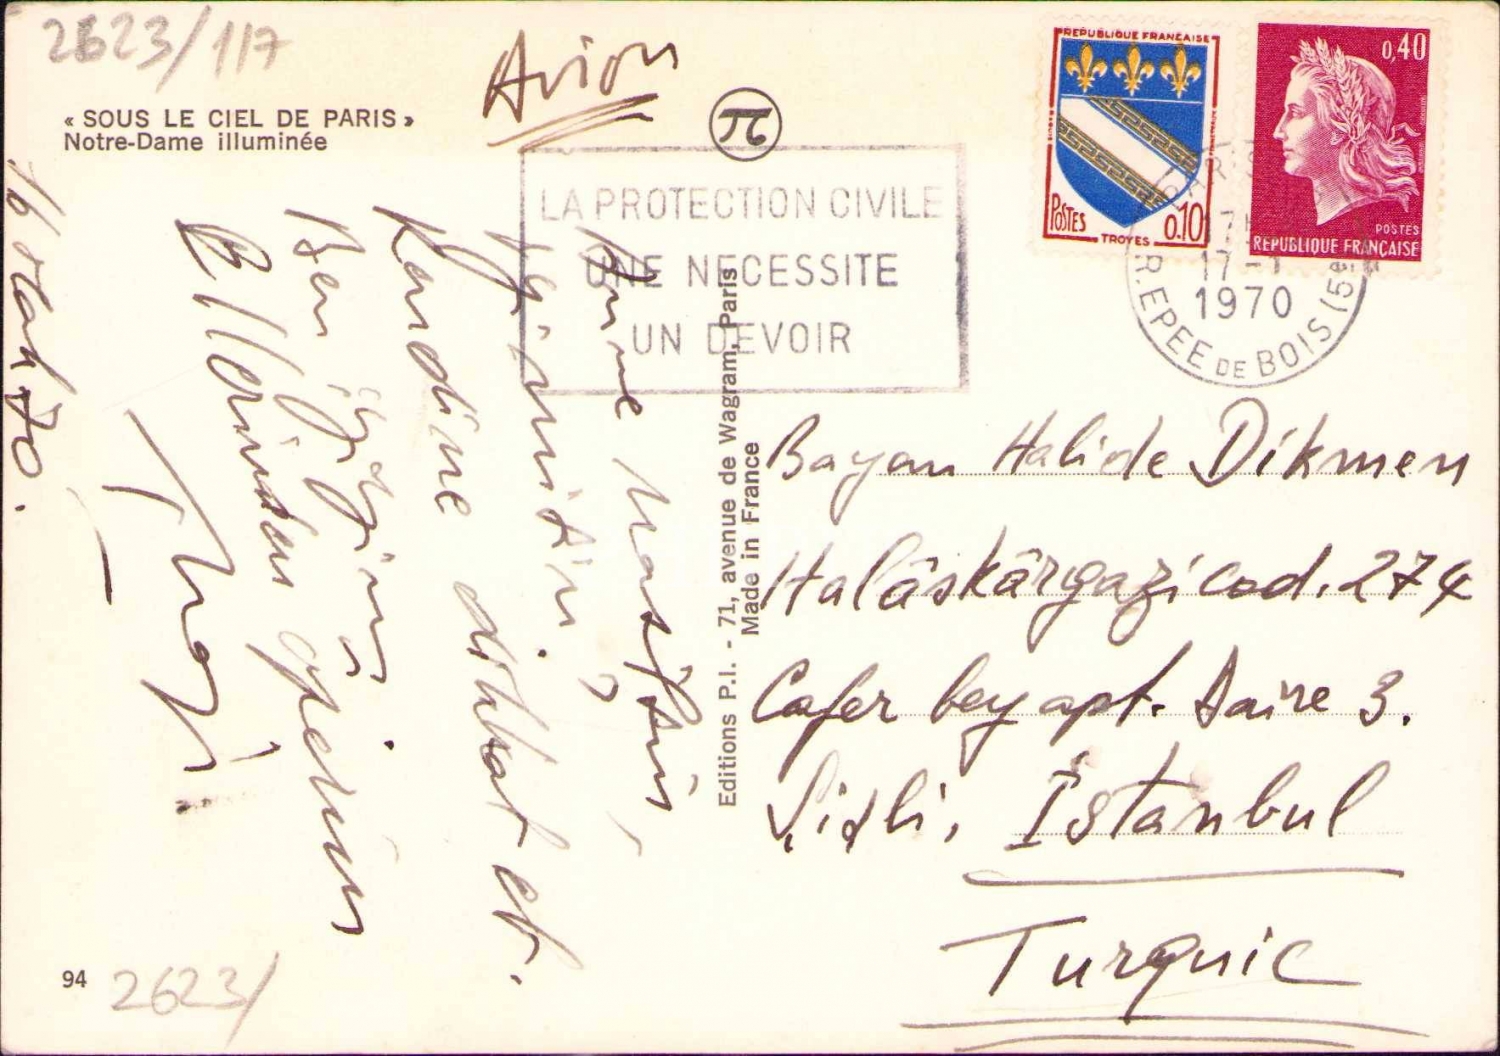 2623/117
« SOUS LE CIEL DE PARIS »
Notre-Dame illuminée
Avion
LA PROTECTION CIVILE
UNE NECESSITE
UN DEVOIR
REPUBLIQUE FRANÇAISE
POSTES 0.10
TROYES
0,40
POSTES
REPUBLIQUE FRANÇAISE
PARIS
17-1
1970
R. EPEE DE BOIS (5e)
16 Ocak 70.
Anne
Kendine dikkat et.
Ben iyiyim.
öperim
Editions P.I. - 71, avenue de Wagram, Paris
Made in France
Bayan Halide Dikmen
Halâskârgazi cad. 274
Cafer bey apt. Daire 3.
Şişli, İstanbul
Turquie
94
2623/